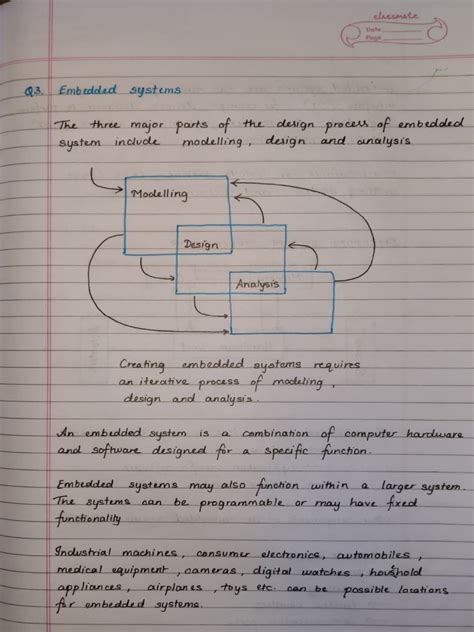 classmate
Date
Page
Q3. Embedded systems
The three major parts of the design process of embedded
system include modelling, design and analysis
Modelling
Design
Analysis
Creating embedded systems requires
an iterative process of modeling,
design and analysis.
An embedded system is a combination of computer hardware
and software designed for a specific function.
Embedded systems may also function within a larger system.
The systems can be programmable or may have fixed
functionality
Industrial machines, consumer electronics, automobiles,
medical equipment, cameras, digital watches, household
appliances, airplanes, toys etc. can be possible locations
for embedded systems.